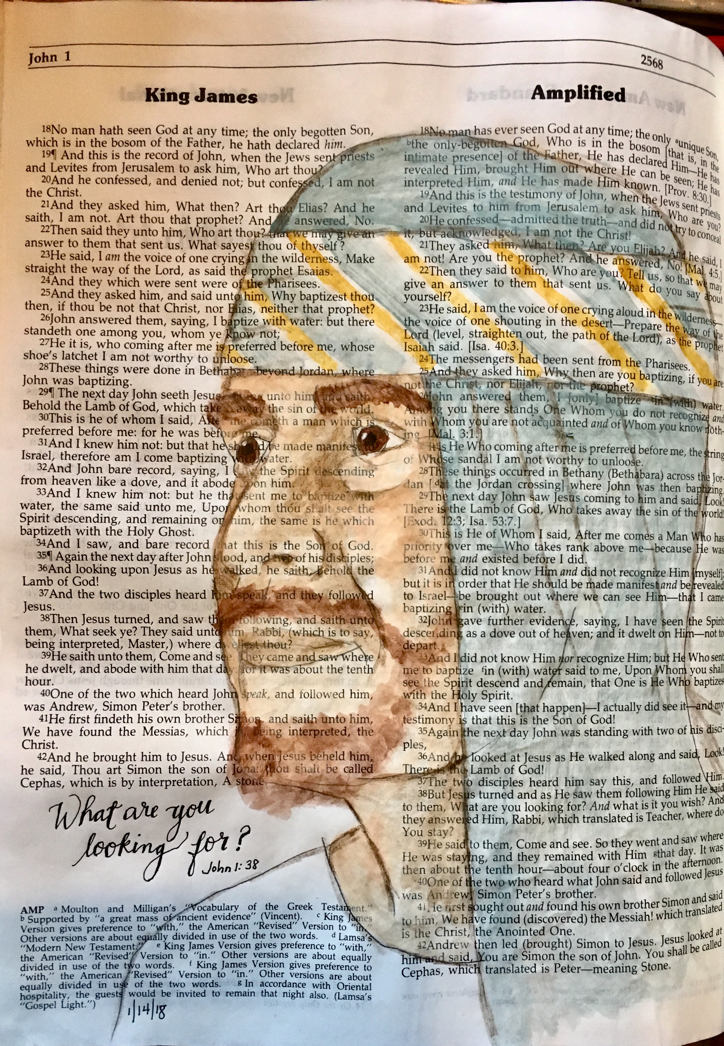 John 1
2568
King James
18No man hath seen God at any time; the only begotten Son,
which is in the bosom of the Father, he hath declared him.
19¶ And this is the record of John, when the Jews sent priests
and Levites from Jerusalem to ask him, Who art thou?
20And he confessed, and denied not; but confessed, I am not
the Christ.
21And they asked him, What then? Art thou Elias? And he
saith, I am not. Art thou that prophet? And he answered, No.
22Then said they unto him, Who art thou? that we may give an
answer to them that sent us. What sayest thou of thyself?
23He said, I am the voice of one crying in the wilderness, Make
straight the way of the Lord, as said the prophet Esaias.
24And they which were sent were of the Pharisees.
25And they asked him, and said unto him, Why baptizest thou
then, if thou be not that Christ, nor Elias, neither that prophet?
26John answered them, saying, I baptize with water: but there
standeth one among you, whom ye know not;
27He it is, who coming after me is preferred before me, whose
shoe's latchet I am not worthy to unloose.
28These things were done in Bethabara beyond Jordan, where
John was baptizing.
29¶ The next day John seeth Jesus unto him and saith,
Behold the Lamb of God, which taketh away the sin of the world.
30This is he of whom I said, After me cometh a man which is
preferred before me: for he was before me.
31And I knew him not: but that he should be made manifest to
Israel, therefore am I come baptizing with water.
32And John bare record, saying, I saw the Spirit descending
from heaven like a dove, and it abode upon him.
33And I knew him not: but he that sent me to baptize with
water, the same said unto me, Upon whom thou shalt see the
Spirit descending, and remaining on him, the same is he which
baptizeth with the Holy Ghost.
34And I saw, and bare record that this is the Son of God.
35¶ Again the next day after John stood, and two of his disciples;
36And looking upon Jesus as he walked, he saith, Behold the
Lamb of God!
37And the two disciples heard him speak, and they followed
Jesus.
38Then Jesus turned, and saw them following, and saith unto
them, What seek ye? They said unto him, Rabbi, (which is to say,
being interpreted, Master,) where dwellest thou?
39He saith unto them, Come and see. They came and saw where
he dwelt, and abode with him that day: for it was about the tenth
hour.
40One of the two which heard John speak, and followed him,
was Andrew, Simon Peter's brother.
41He first findeth his own brother Simon, and saith unto him,
We have found the Messias, which is, being interpreted, the
Christ.
42And he brought him to Jesus. And when Jesus beheld him,
he said, Thou art Simon the son of Jona: thou shalt be called
Cephas, which is by interpretation, A stone.
What are you
looking for?
John 1:38
AMP a Moulton and Milligan's "Vocabulary of the Greek Testament."
b Supported by "a great mass of ancient evidence" (Vincent). c King James
Version gives preference to "with," the American "Revised" Version to "in."
Other versions are about equally divided in use of the two words. d Lamsa's
"Modern New Testament." e King James Version gives preference to "with,"
the American "Revised" Version to "in." Other versions are about equally
divided in use of the two words. f King James Version gives preference to
"with," the American "Revised" Version to "in." Other versions are about
equally divided in use of the two words. g In accordance with Oriental
hospitality, the guests would be invited to remain that night also. (Lamsa's
"Gospel Light.")
1/14/18
Amplified
18No man has ever seen God at any time; the only aunique Son,
bthe only-begotten God, Who is in the bosom [that is, in the
intimate presence] of the Father, He has declared Him—He has
revealed Him, brought Him out where He can be seen; He has
interpreted Him, and He has made Him known. [Prov. 8:30.]
19And this is the testimony of John, when the Jews sent priests
and Levites to him from Jerusalem to ask him, Who are you?
20He confessed—admitted the truth—and did not try to conceal
it, but acknowledged, I am not the Christ!
21They asked him, What then? Are you Elijah? And he said, I
am not! Are you the prophet? And he answered, No! [Mal. 4:5.
22Then they said to him, Who are you? Tell us, so that we may
give an answer to them that sent us. What do you say about
yourself?
23He said, I am the voice of one crying aloud in the wilderness—
the voice of one shouting in the desert—Prepare the way of the
Lord (level, straighten out, the path of the Lord), as the prophet
Isaiah said. [Isa. 40:3.]
24The messengers had been sent from the Pharisees.
25And they asked him, Why then are you baptizing, if you are
not the Christ, nor Elijah, nor the prophet?
John answered them, I [only] baptize in (with) water.
Among you there stands One Whom you do not recognize and
with Whom you are not acquainted and of Whom you know noth-
ing. [Mal. 3:1.]
It is He Who coming after me is preferred before me, the string
of Whose sandal I am not worthy to unloose.
28These things occurred in Bethany (Bethabara) across the Jor-
dan [dat the Jordan crossing] where John was then baptizing.
29The next day John saw Jesus coming to him and said, Look!
There is the Lamb of God, Who takes away the sin of the world!
[Exod. 12:3; Isa. 53:7.]
30This is He of Whom I said, After me comes a Man Who has
priority over me—Who takes rank above me—because He was
before me and existed before I did.
31And I did not know Him and did not recognize Him [myself];
but it is in order that He should be made manifest and be revealed
to Israel—be brought out where we can see Him—that I came
baptizing ein (with) water.
32John gave further evidence, saying, I have seen the Spirit
descending as a dove out of heaven; and it dwelt on Him—not to
depart
And I did not know Him nor recognize Him; but He Who sent
me to baptize fin (with) water said to me, Upon Whom you shall
see the Spirit descend and remain, that One is He Who baptizes
with the Holy Spirit.
34And I have seen [that happen]—I actually did see it—and my
testimony is that this is the Son of God!
35Again the next day John was standing with two of his disci-
ples,
36And he looked at Jesus as He walked along and said, Look!
There is the Lamb of God!
37The two disciples heard him say this, and followed Him.
38But Jesus turned and as He saw them following Him He said
to them, What are you looking for? And what is it you wish? And
they answered Him, Rabbi, which translated is Teacher, where do
You stay?
39He said to them, Come and see. So they went and saw where
He was staying, and they remained with Him gthat day. It was
then about the tenth hour—about four o'clock in the afternoon.
40One of the two who heard what John said and followed Jesus
was Andrew, Simon Peter's brother.
41He first sought out and found his own brother Simon and said
to him, We have found (discovered) the Messiah! which translated
is the Christ, the Anointed One.
42Andrew then led (brought) Simon to Jesus. Jesus looked at
him and said, You are Simon the son of John. You shall be called
Cephas, which translated is Peter—meaning Stone.